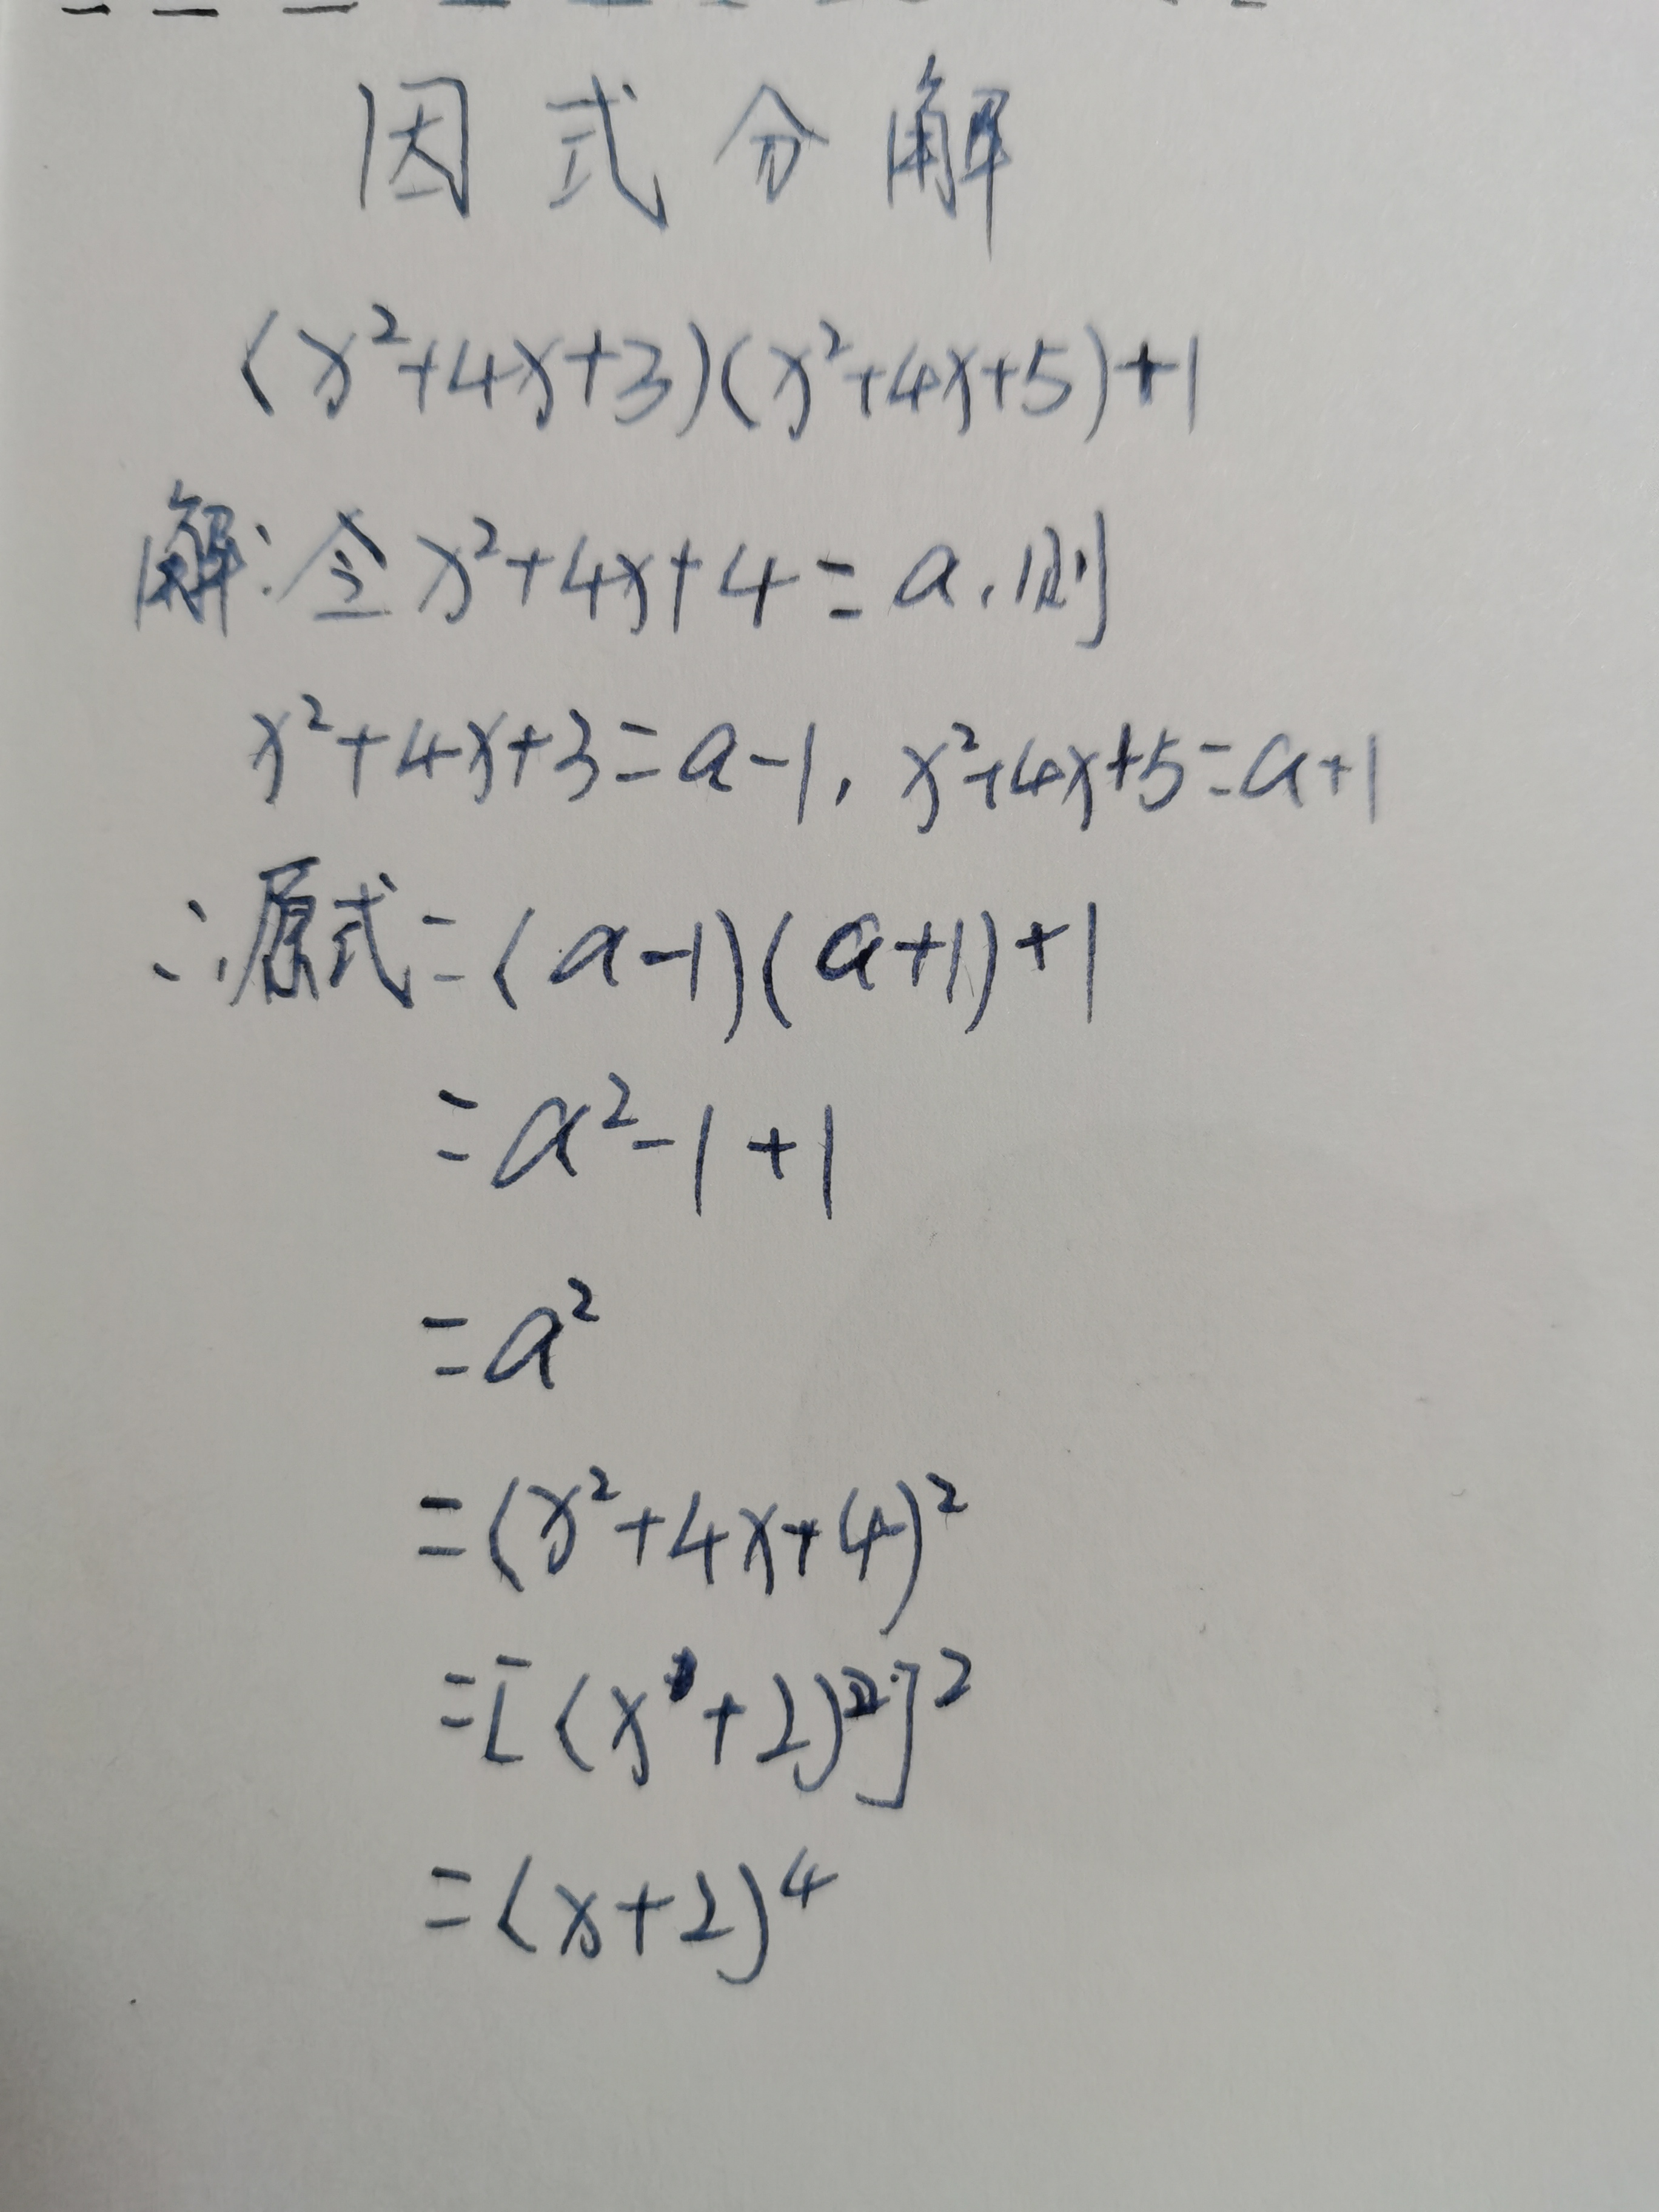 因式分解
(x²+4x+3)(x²+4x+5)+1
解:令x²+4x+4=a,则
x²+4x+3=a-1,x²+4x+5=a+1
∴原式=(a-1)(a+1)+1
=a²-1+1
=a²
=(x²+4x+4)²
=[(x+2)²]²
=(x+2)⁴